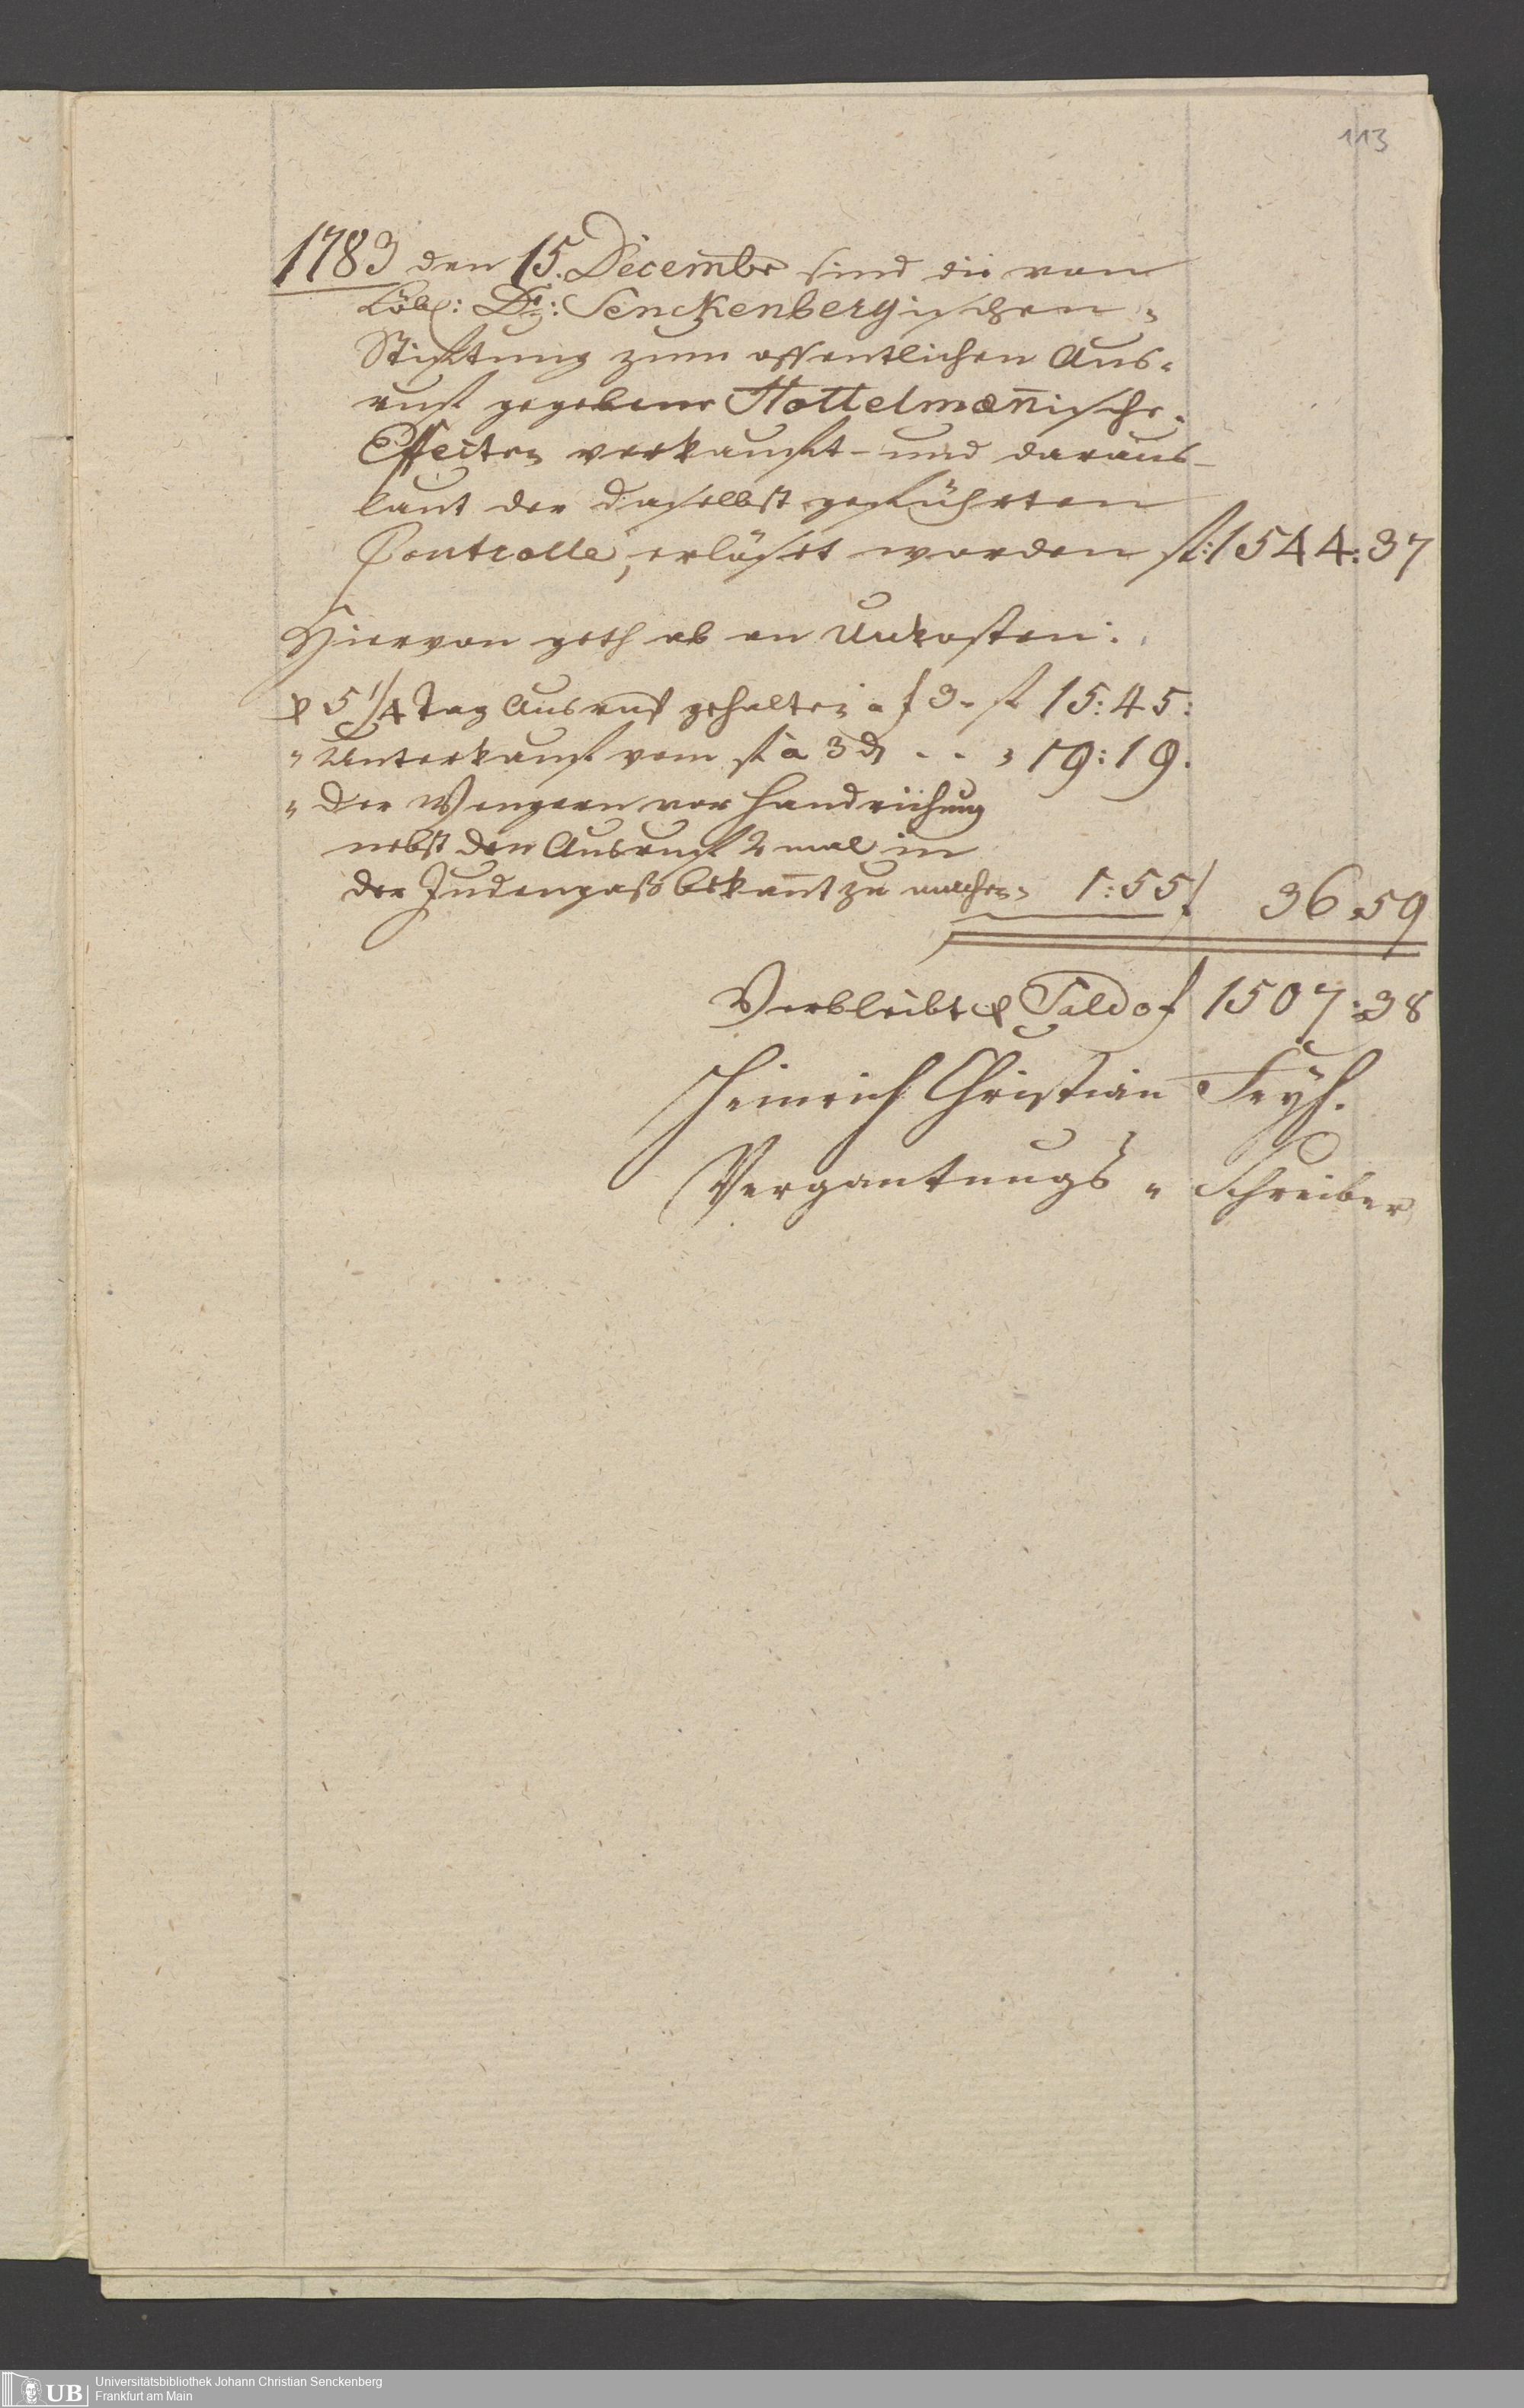 113
1783 den 15. Decembr sind die von
Löbl: Dr: Senckenbergischen
Stifftung zum offentlichen Aus-
ruff gegebene Hottelmañische
Effecten verkaufft- und daraus-
laut der daselbst geführten
Controlle, erlößet worden fl: 1544: 37
Hiervon geth ab an Unkosten:
5 1/4 Tag Ausruf gehalten a f 3 - fl 15: 45:
" Unterkauff vom fl a 3 d - - " 19: 19.
" der vor Handreichung
nebst den Ausruff 2 mal in
der Judengaß bekañt zu machen " 1: 55 f 36 . 59
Verbleibt Saldo f 1507 : 38
Heinrich Christian Feyh.
Vergantungs " Schreiber
UB Universitätsbibliothek Johann Christian Senckenberg
Frankfurt am Main